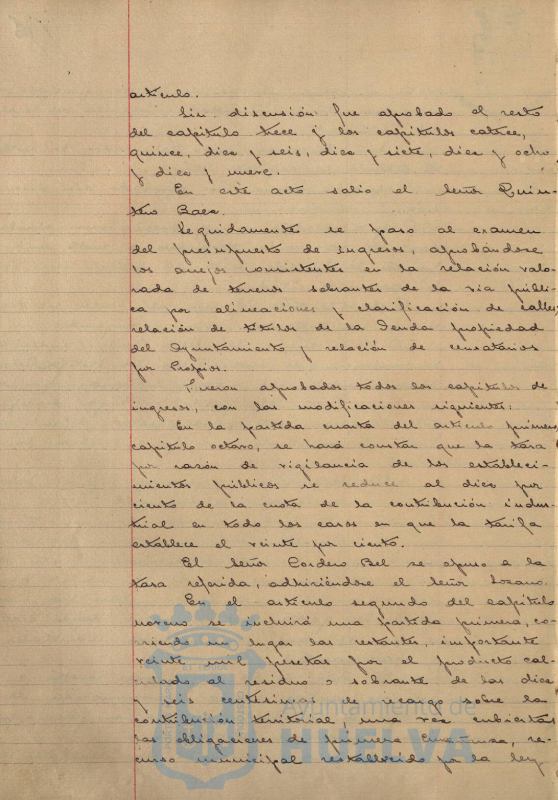 artículo.
Sin discusión fue aprobado el resto
del capítulo trece y los capítulos catorce,
quince, diez y seis, diez y siete, diez y ocho
y diez y nueve.
En este acto salió el Señor Quin-
tero Baez.
Seguidamente se pasó al examen
del presupuesto de ingresos, aprobándose
los anejos consistentes en la relación valo-
rada de terrenos sobrantes de la vía públi-
ca por alineaciones y clasificación de calles,
relación de títulos de la Deuda propiedad
del Ayuntamiento y relación de censatarios
por Propios.
Fueron aprobados todos los capítulos de
ingresos, con las modificaciones siguientes:
En la partida cuarta del artículo primero,
capítulo octavo, se hará constar que la tasa
por razón de vigilancia de los estableci-
mientos públicos se reduce al diez por
ciento de la cuota de la contribución indus-
trial en todo los casos en que la tarifa
establece el veinte por ciento.
El Señor Cordero Bel se opuso a la
tasa referida, adhiriéndose el Señor Lozano.
En el artículo segundo del capítulo
noveno se incluirá una partida primera, co-
rriendo su lugar las restantes, importante
veinte mil pesetas por el producto cal-
culado al residuo o sobrante de las diez
y seis centésimas de recargo sobre la
contribución territorial, una vez cubiertas
las obligaciones de primera Enseñanza, re-
curso municipal restablecido por la ley
Ayuntamiento de
HUELVA